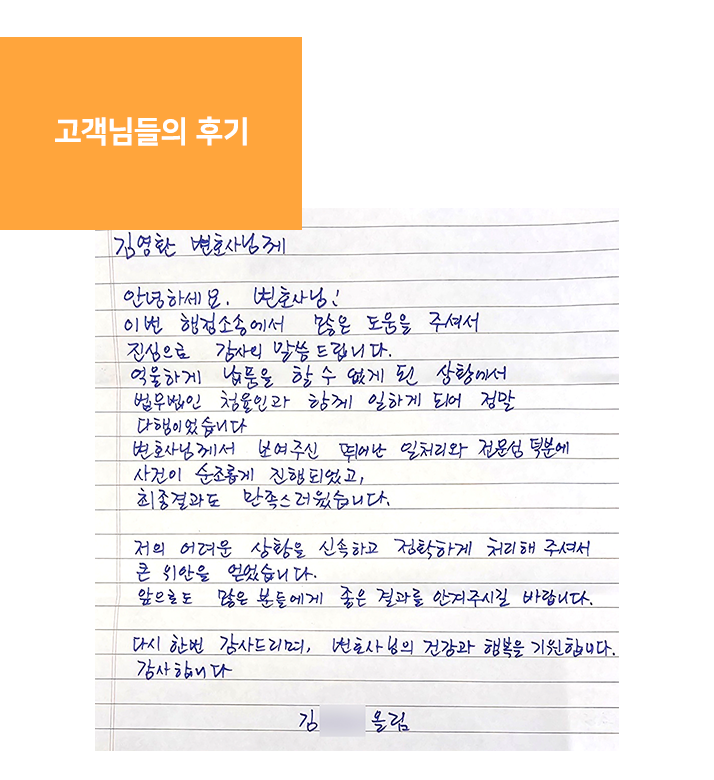 고객님들의 후기
김영환 변호사님께
안녕하세요. 변호사님!
이번 행정소송에서 많은 도움을 주셔서
진심으로 감사의 말씀드립니다.
억울하게 납품을 할 수 없게 된 상황에서
법무법인 청율인과 함께 일하게 되어 정말
다행이었습니다
변호사님께서 보여주신 뛰어난 일처리와 전문성 덕분에
사건이 순조롭게 진행되었고,
최종결과도 만족스러웠습니다.
저의 어려운 상황을 신속하고 정확하게 처리해 주셔서
큰 위안을 얻었습니다.
앞으로도 많은 분들에게 좋은 결과를 안겨주시길 바랍니다.
다시 한번 감사드리며, 변호사님의 건강과 행복을 기원합니다.
감사합니다
김 올림